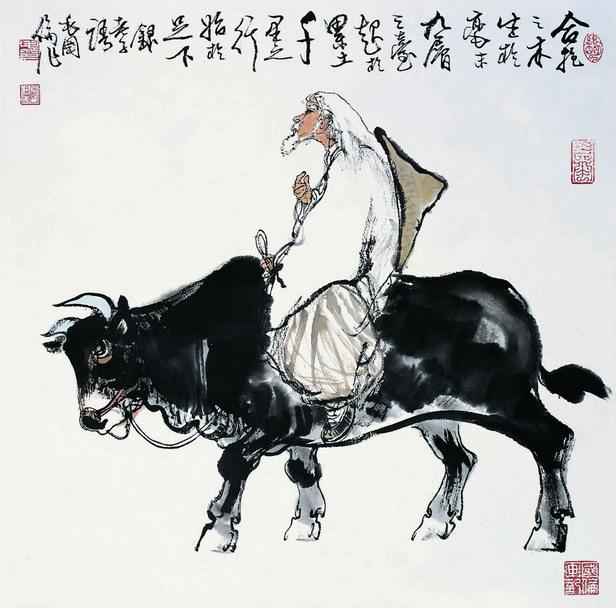 合抱
之木
生於
毫末
九層
之臺
起於
累土
千
里之
行
始於
足下
錄
老子
語
國
作